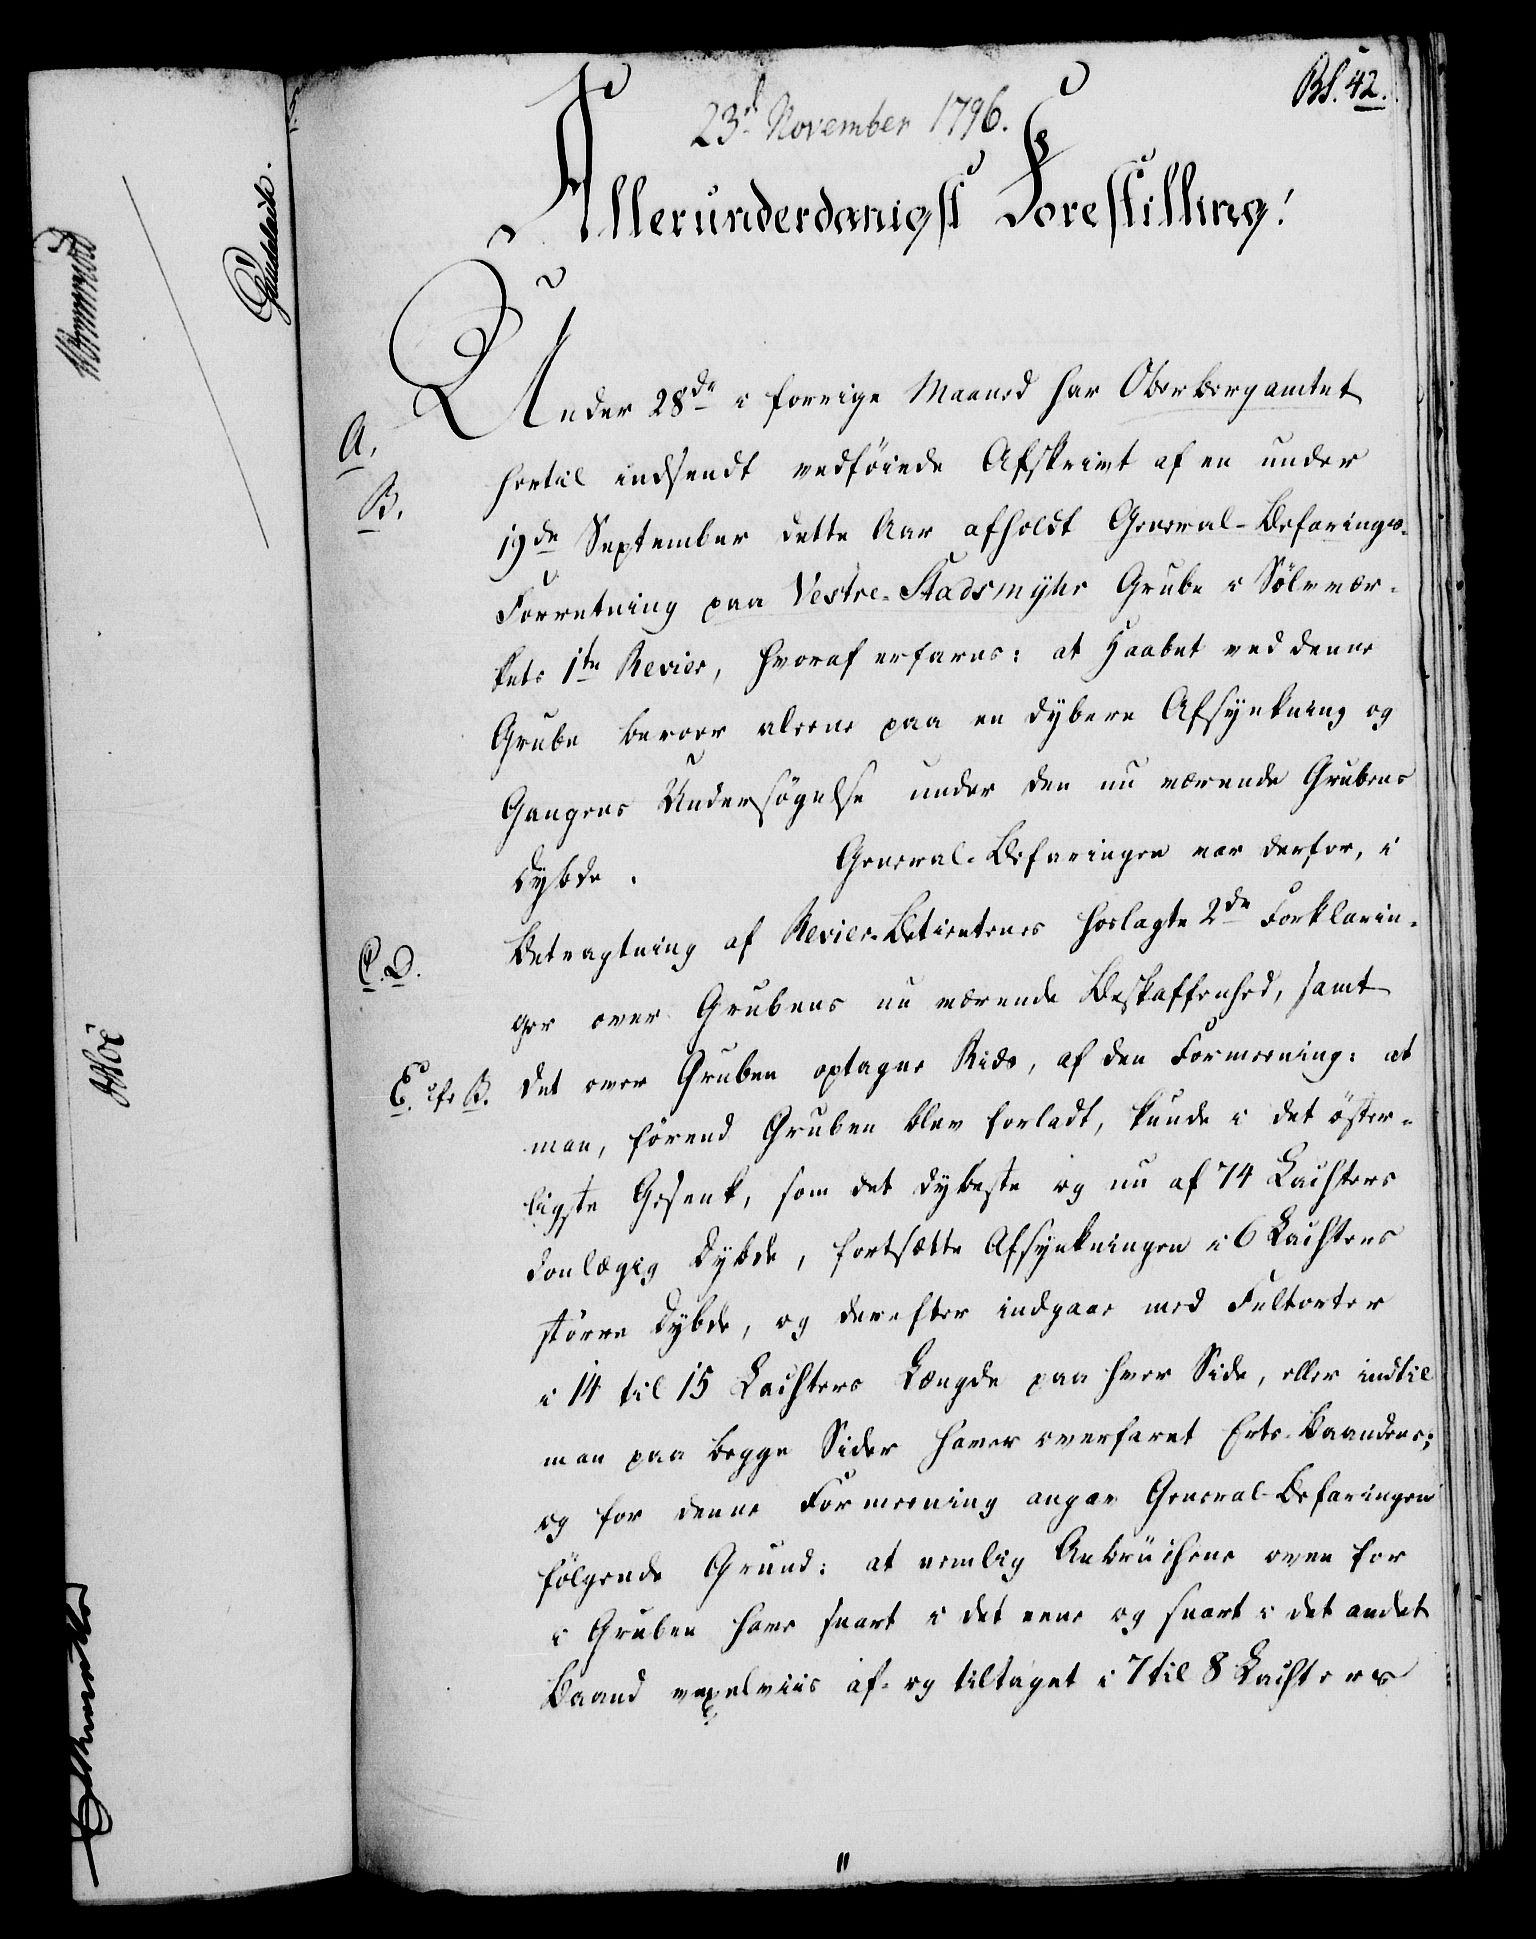 Bs. 42.
23d November 1796.
Allerunderdanigst Forestilling!
Under 28de i forrige Maaned har Oberbergamtet
A.
hertil indsendt vedföiede Afskrivt af en under
B.
19de September dette Aar afholdt General-Befarings-
Forretning paa Vestre-Stadsmyhr Grube i Sölvvær-
kets 1te Revier, hvoraf erfares: at Haabet ved denne
Grube beroer alene paa en dybere Afsynkning og
Gangens Undersögelse under den nu værende Grubens
Dybde. General-Befaringen var derfor, i
Betragtning af Revier-Betienternes hoslagte 2de Forklarin-
C. D.
ger over Grubens nu værende Beskaffenhed, samt
E. cfr B. det over Gruben optagne Rids, af den Formeening: at
man, förend Gruben blev forladt, kunde i det öster-
ligste Gesenk, som det dybeste og nu af 74 Lachters
donlægig Dybde, fortsætte Afsynkningen i 6 Lachters
större Dybde, og derefter indgaae med Feltorter
i 14 til 15 Lachters Længde paa hver Side, eller indtil
man paa begge Sider haver overfaret Erts-Baandene;
og for denne Formeening angav General-Befaringen
fölgende Grund: at nemlig Anbrüchene oven for
i Gruben have snart i det eene og snart i det andet
Baand vexelviis af- og tiltaget i 7 til 8 Lachters